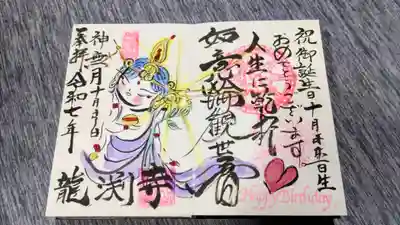 祝御誕生日
おめでとうございます
人生に乾杯
如意輪観世音
Happy Birthday
神無月
奉拝 令和七年
龍渕寺